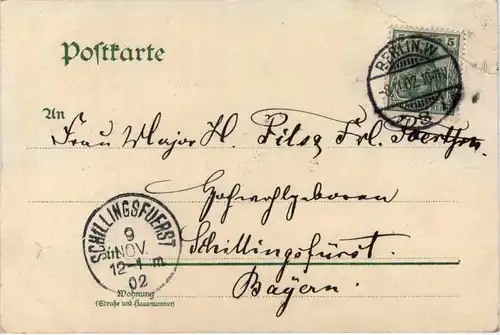 Postkarte
5
BERLIN.W.
-8.11.02.10-11V.
An
Frau Major H. Pilsa Frl.
Hochwohlgeboren
SCHILLINGSFUERST
9
NOV.
12-1 m
02
Schillingsfürst.
Bayern.
Wohnung
(Straße und Hausnummer)